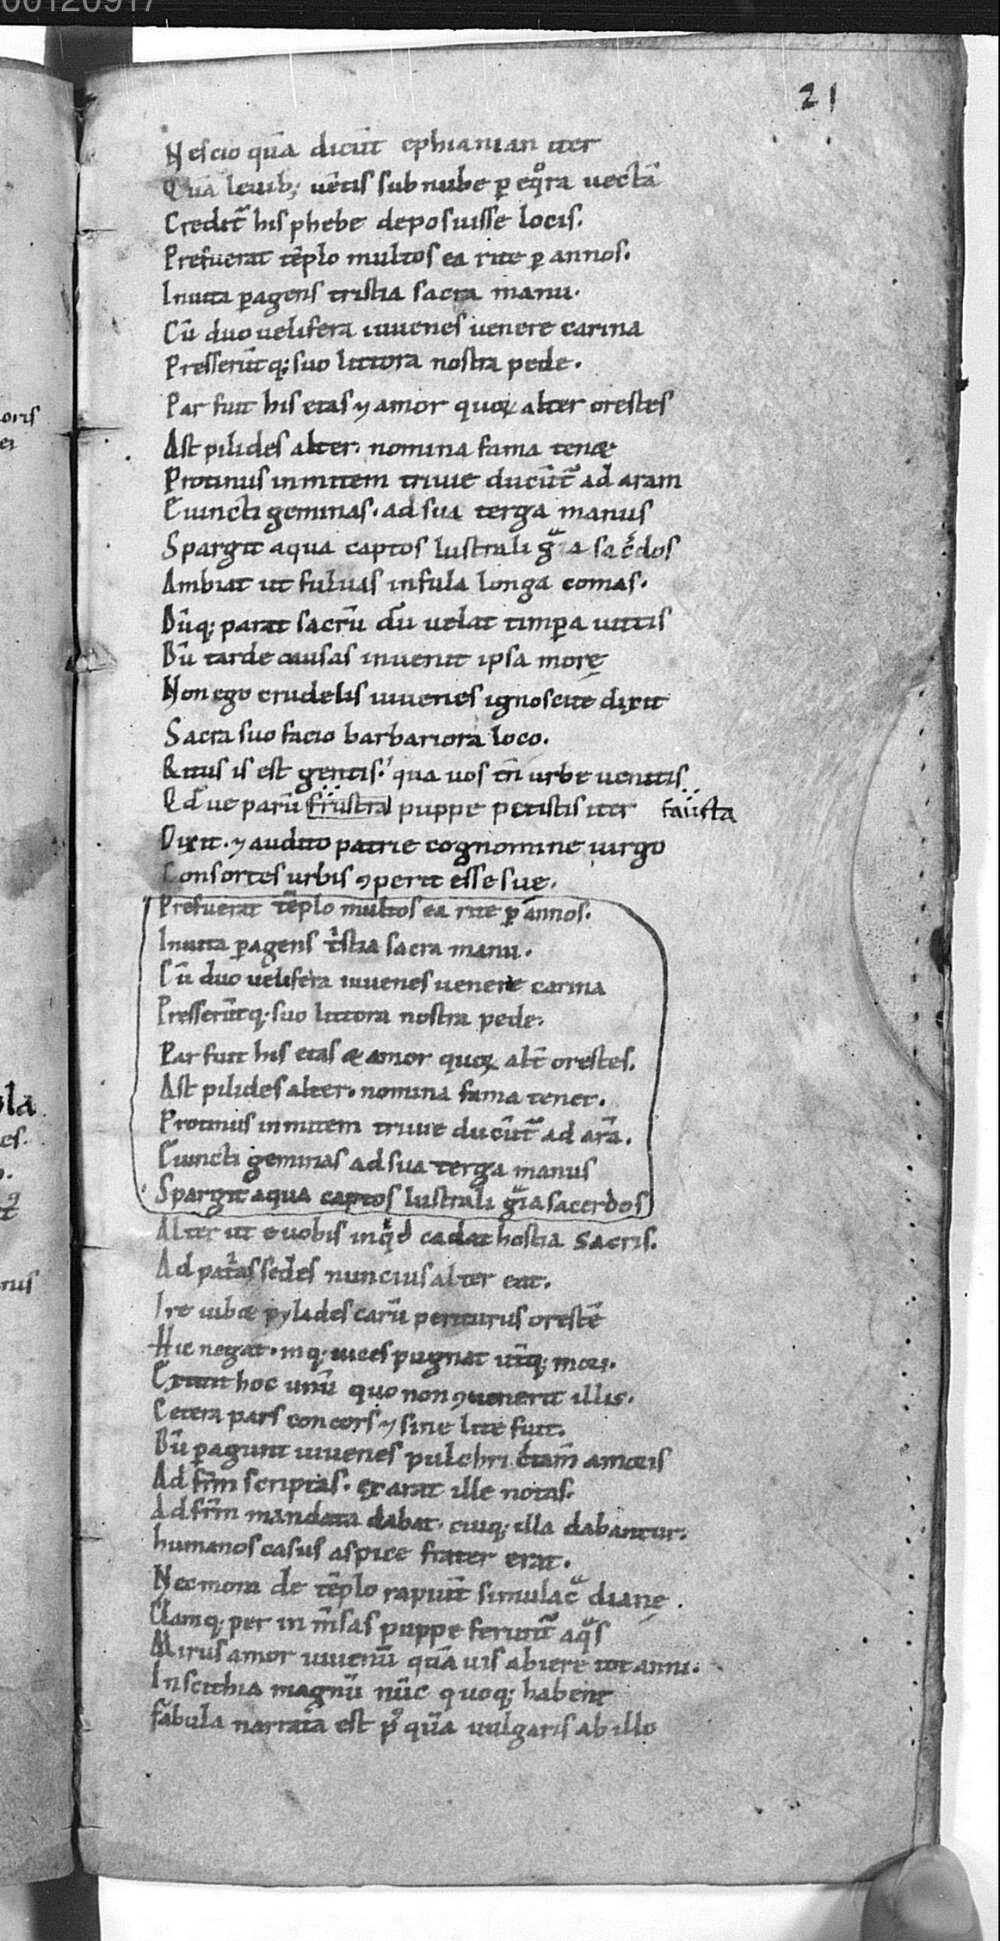 00120917
21
Nescio quā dicūt ephianian iter
Quā leuib; uētis sub nube ꝑ eqͦra uectā
Creditʳ his phebe deposuisse locis.
Prefuerat tēplo multos ea rite ꝑ annos.
Inuita ꝑagens tristia sacra manu.
Cū duo uelifera iuuenes uenere carina
Presserūtq; suo littora nostra pede.
Par fuit his etas ⁊ amor quoꝝ alter orestes
Ast pilides alter. nomina fama tenæ
Protinus inmitem triuie ducūtʳ ad aram
Euincti geminas. ad sua terga manus
Spargit aqua captos lustrali gͣia sac̄dos
Ambiat ut fuluas infula longa comas.
Dūq; parat sacrū dū uelat timꝑa uittis
Dū tarde causas inuenit ipsa morę
Non ego crudelis iuuenes ignoscite dixit
Sacra suo facio barbariora loco.
Ritus is est gentis. qua uos tn̄ urbe uenitis
Qd̄ue parū frustra puppe petistis iter fausta
Dixit. ⁊ audito patrie cognomine uirgo
Consortes urbis ꝯperit esse suę.
Prefuerat tēplo multos ea rite ꝑ annos.
Inuita ꝑagens tͥstia sacra manu.
Cū duo uelifera iuuenes uenere carina
Presserūtq; suo littora nostra pede.
Par fuit his etas & amor quoꝝ alt̄ orestes.
Ast pilides alter. nomina fama tenet.
Protinus inmitem triuie ducūtʳ ad arā.
Euincti geminas ad sua terga manus
Spargit aqua captos lustrali gͣia sacerdos
Alter ut e uobis inqͥd cadat hostia sacris.
Ad patͥas sedes nuncius alter eat.
Ire iubæ pylades carū periturus orestē
Hic negat. inq; uices pugnat utq; mori.
Extitit hoc unū quo non ꝯuenerit illis.
Cetera pars concors ⁊ sine lite fuit.
Dū ꝑagunt iuuenes pulchri c̄tam̄ amoris
Ad fr̄m scriptas. exarat ille notas.
Ad fr̄m mandata dabat. cuiq; illa dabantur.
humanos casus aspice frater erat.
Nec mora de tēplo rapiūt simulacͣ dianę.
Clamq; per in m̄sas puppe feruntʳ aqͣs
Mirus amor iuuenū quāuis abiere tot anni.
In scithia magnū nūc quoq; habent
fabula narrata est pͦ quā uulgaris ab illo